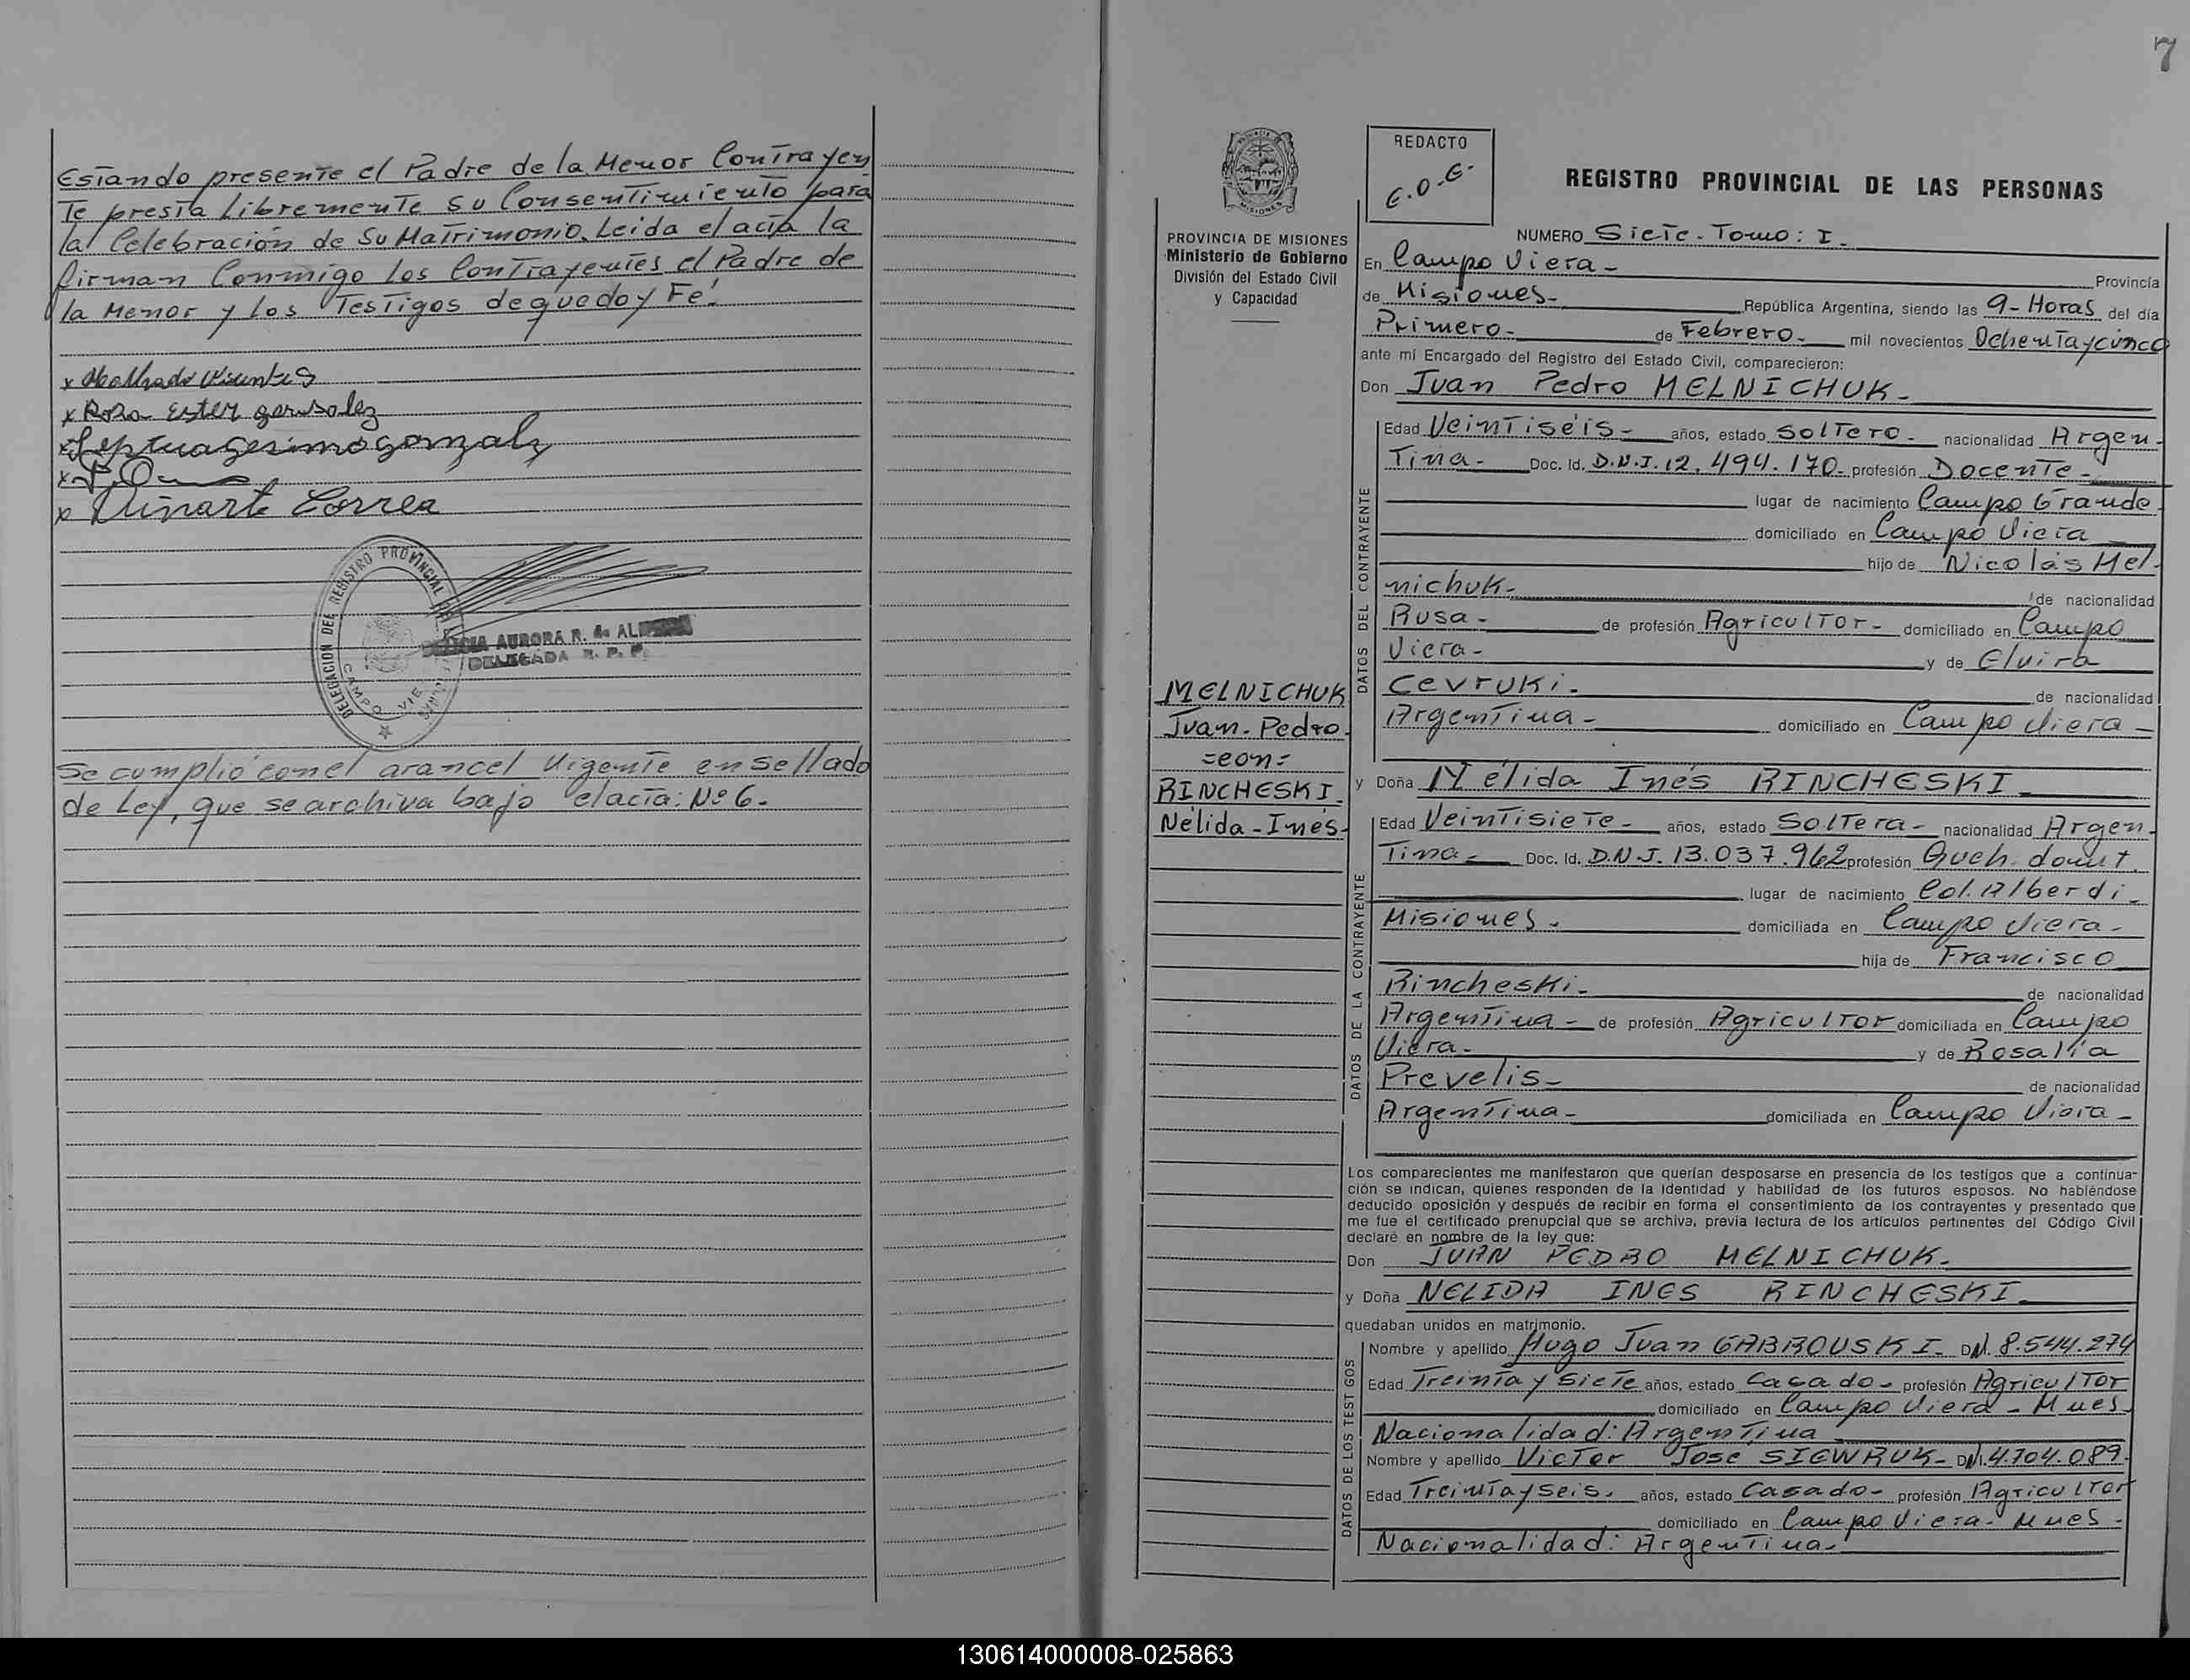 Estando presente el Padre de la Menor Contrayen
te presta libremente su Consentimiento para
la Celebración de Su Matrimonio. Leida el acta la
firman Conmigo los Contrayentes el Padre de
la Menor y los Testigos de que doy Fe!
x
x Rosa Ester gonsalez
x Septuagesimo gonzalez
x
x Duarte Correa
DELEGACION DEL REGISTRO PROVINCIAL
CAMPO VIERA
AURORA R. de
DELEGADA R. P. P.
Se cumplió con el arancel Vigente en sellado
de Ley, que se archiva bajo el acta: Nº 6.
7
PROVINCIA DE MISIONES
Ministerio de Gobierno
División del Estado Civil
y Capacidad
MELNICHUK
Juan-Pedro
=con=
RINCHESKI
Nélida-Inés
REDACTO
E.O.E.
REGISTRO PROVINCIAL DE LAS PERSONAS
NUMERO Siete. Tomo: I.
En Campo Viera- Provincia
de Misiones- República Argentina, siendo las 9-Horas del día
Primero- de Febrero- mil novecientos Ochenta y cinco
ante mí Encargado del Registro del Estado Civil, comparecieron:
Don Juan Pedro MELNICHUK-
DATOS DEL CONTRAYENTE
Edad Veintiséis- años, estado Soltero- nacionalidad Argen-
tina- Doc. Id. D.N.I. 12.494.170- profesión Docente-
lugar de nacimiento Campo Grande
domiciliado en Campo Viera
hijo de Nicolás Mel-
nichuk- de nacionalidad
Rusa- de profesión Agricultor- domiciliado en Campo
Viera- y de Elvira
Cevruki- de nacionalidad
Argentina- domiciliado en Campo Viera-
y Doña Nélida Inés RINCHESKI
DATOS DE LA CONTRAYENTE
Edad Veintisiete- años, estado Soltera- nacionalidad Argen-
tina- Doc. Id. D.N.I. 13.037.962 profesión Queh. domt.
lugar de nacimiento Col. Alberdi-
Misiones- domiciliada en Campo Viera-
hija de Francisco
Rincheski- de nacionalidad
Argentina- de profesión Agricultor domiciliada en Campo
Viera- y de Rosalía
Prevelis- de nacionalidad
Argentina- domiciliada en Campo Viera-
Los comparecientes me manifestaron que querían desposarse en presencia de los testigos que a continua-
ción se indican, quienes responden de la identidad y habilidad de los futuros esposos. No habiéndose
deducido oposición y después de recibir en forma el consentimiento de los contrayentes y presentado que
me fue el certificado prenupcial que se archiva, previa lectura de los artículos pertinentes del Código Civil
declaré en nombre de la ley que:
Don JUAN PEDRO MELNICHUK-
y Doña NELIDA INES RINCHESKI-
quedaban unidos en matrimonio.
DATOS DE LOS TESTIGOS
Nombre y apellido Hugo Juan GABROUSKI- DNI. 8.544.274
Edad Treinta y Siete años, estado Casado- profesión Agricultor
domiciliado en Campo Viera- Mnes-
Nacionalidad: Argentina
Nombre y apellido Victor José SIEWRUK- DNI. 4.704.089-
Edad Treinta y seis. años, estado Casado- profesión Agricultor
domiciliado en Campo Viera- Mnes-
Nacionalidad: Argentina-
130614000008-025863